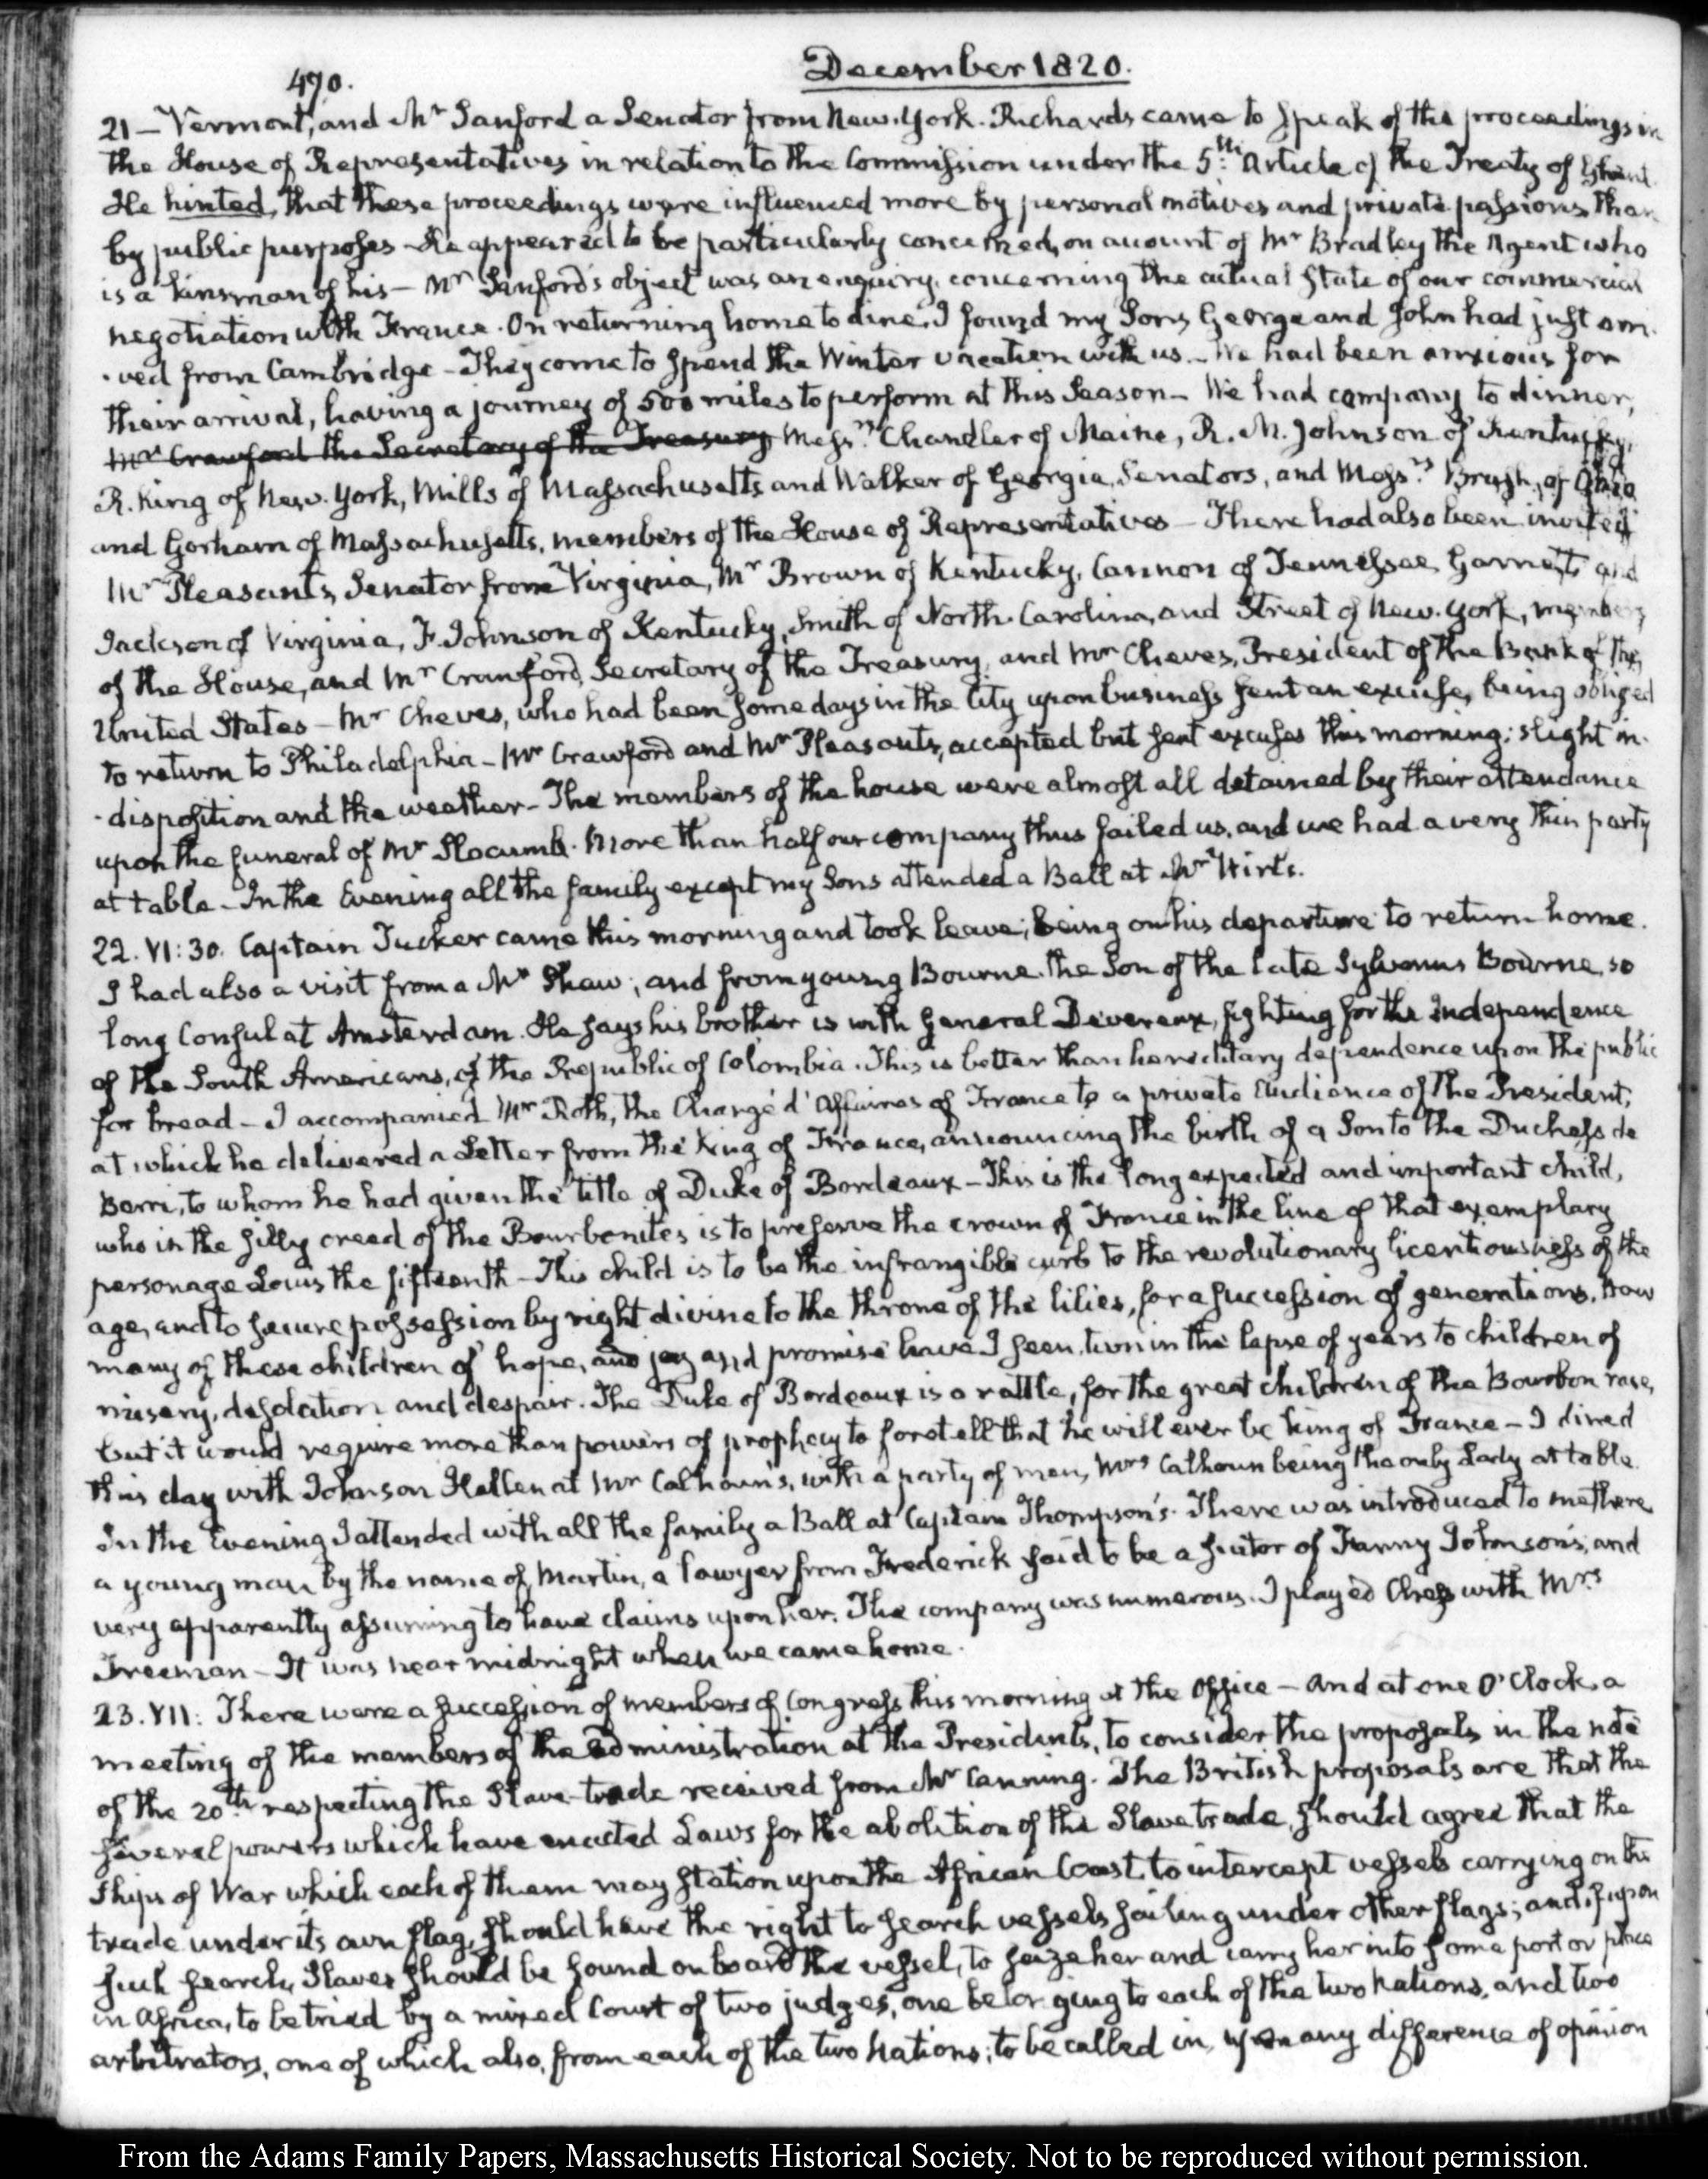 490.
December 1820.
21 — Vermont, and Mr Sanford a Senator from New-York. Richards came to speak of the proceedings in
the House of Representatives in relation to the Commission under the 5th: Article of the Treaty of Ghent.
He hinted, that these proceedings were influenced more by personal motives and private passions than
by public purposes — He appeared to be particularly concerned, on account of Mr Bradley the Agent who
is a kinsman of his — Mr Sanford's object was an enquiry, concerning the actual State of our commercial
negotiation with France. On returning home to dine, I found my Sons George and John had just arri-
-ved from Cambridge — They come to spend the Winter vacation with us. — We had been anxious for
their arrival, having a journey of 500 miles to perform at this Season — We had company to dinner,
Mr Crawford the Secretary of the Treasury Messrs: Chandler of Maine, R. M. Johnson of Kentucky,
R. King of New-York, Mills of Massachusetts and Walker of Georgia, Senators, and Messrs: Brush, of Ohio
and Gorham of Massachusetts, members of the House of Representatives — There had also been invited
Mr Pleasants, Senator from Virginia, Mr Brown of Kentucky, Cannon of Tennessee, Garnett and
Jackson of Virginia, F. Johnson of Kentucky, Smith of North-Carolina, and Street of New-York, members
of the House, and Mr Crawford, Secretary of the Treasury, and Mr Cheves, President of the Bank of the
United States — Mr Cheves, who had been some days in the City upon business sent an excuse, being obliged
to return to Philadelphia — Mr Crawford and Mr Pleasants, accepted but sent excuses this morning; slight in-
-disposition and the weather — The members of the house were almost all detained by their attendance
upon the funeral of Mr Slocumb. More than half our company thus failed us, and we had a very thin party
at table — In the Evening all the family except my Sons attended a Ball at Mr Wirt's.
22. VI:30. Captain Tucker came this morning and took leave; being on his departure to return home.
I had also a visit from a Mr Shaw; and from young Bourne, the Son of the late Sylvanus Bourne, so
long Consul at Amsterdam. He says his brother is with General Devereux, fighting for the Independence
of the South Americans, of the Republic of Colombia. This is better than hereditary dependence upon the public
for bread — I accompanied Mr Roth, the Chargé d'Affaires of France to a private Audience of the President,
at which he delivered a Letter from the King of France, announcing the birth of a Son to the Duchess de
Berri, to whom he had given the title of Duke of Bordeaux — This is the long expected and important child,
who in the silly creed of the Bourbonites is to preserve the crown of France in the line of that exemplary
personage Louis the fifteenth — This child is to be the infrangible curb to the revolutionary licentiousness of the
age, and to secure possession by right divine to the throne of the lilies, for a succession of generations. How
many of these children of hope, and joy and promise have I seen, turn in the lapse of years to children of
misery, desolation and despair. The Duke of Bordeaux is a rattle, for the great children of the Bourbon race,
but it would require more than powers of prophecy to foretell that he will ever be King of France — I dined
this day with Johnson Hellen at Mr Calhoun's, with a party of men, Mrs Calhoun being the only Lady at table.
In the Evening I attended with all the family a Ball at Captain Thompson's. There was introduced to me there
a young man by the name of Martin, a lawyer from Frederick said to be a suitor of Fanny Johnson's; and
very apparently assuming to have claims upon her. The company was numerous. I played Chess with Mrs:
Freeman — It was near midnight when we came home.
23. VII: There were a succession of members of Congress this morning at the Office — And at one O'Clock, a
meeting of the members of the administration at the President's, to consider the proposals in the note
of the 20th respecting the Slave-trade received from Mr Canning. The British proposals are that the
several powers which have enacted Laws for the abolition of the Slave trade, should agree that the
ships of War which each of them may station upon the African Coast, to intercept vessels carrying on this
trade under its own flag, should have the right to search vessels sailing under other flags; and if upon
such search, Slaves should be found on board the vessel, to seize her and carry her into some port or place
in Africa, to be tried by a mixed Court of two judges, one belonging to each of the two Nations, and two
arbitrators, one of which also, from each of the two Nations; to be called in, upon any difference of opinion
From the Adams Family Papers, Massachusetts Historical Society. Not to be reproduced without permission.